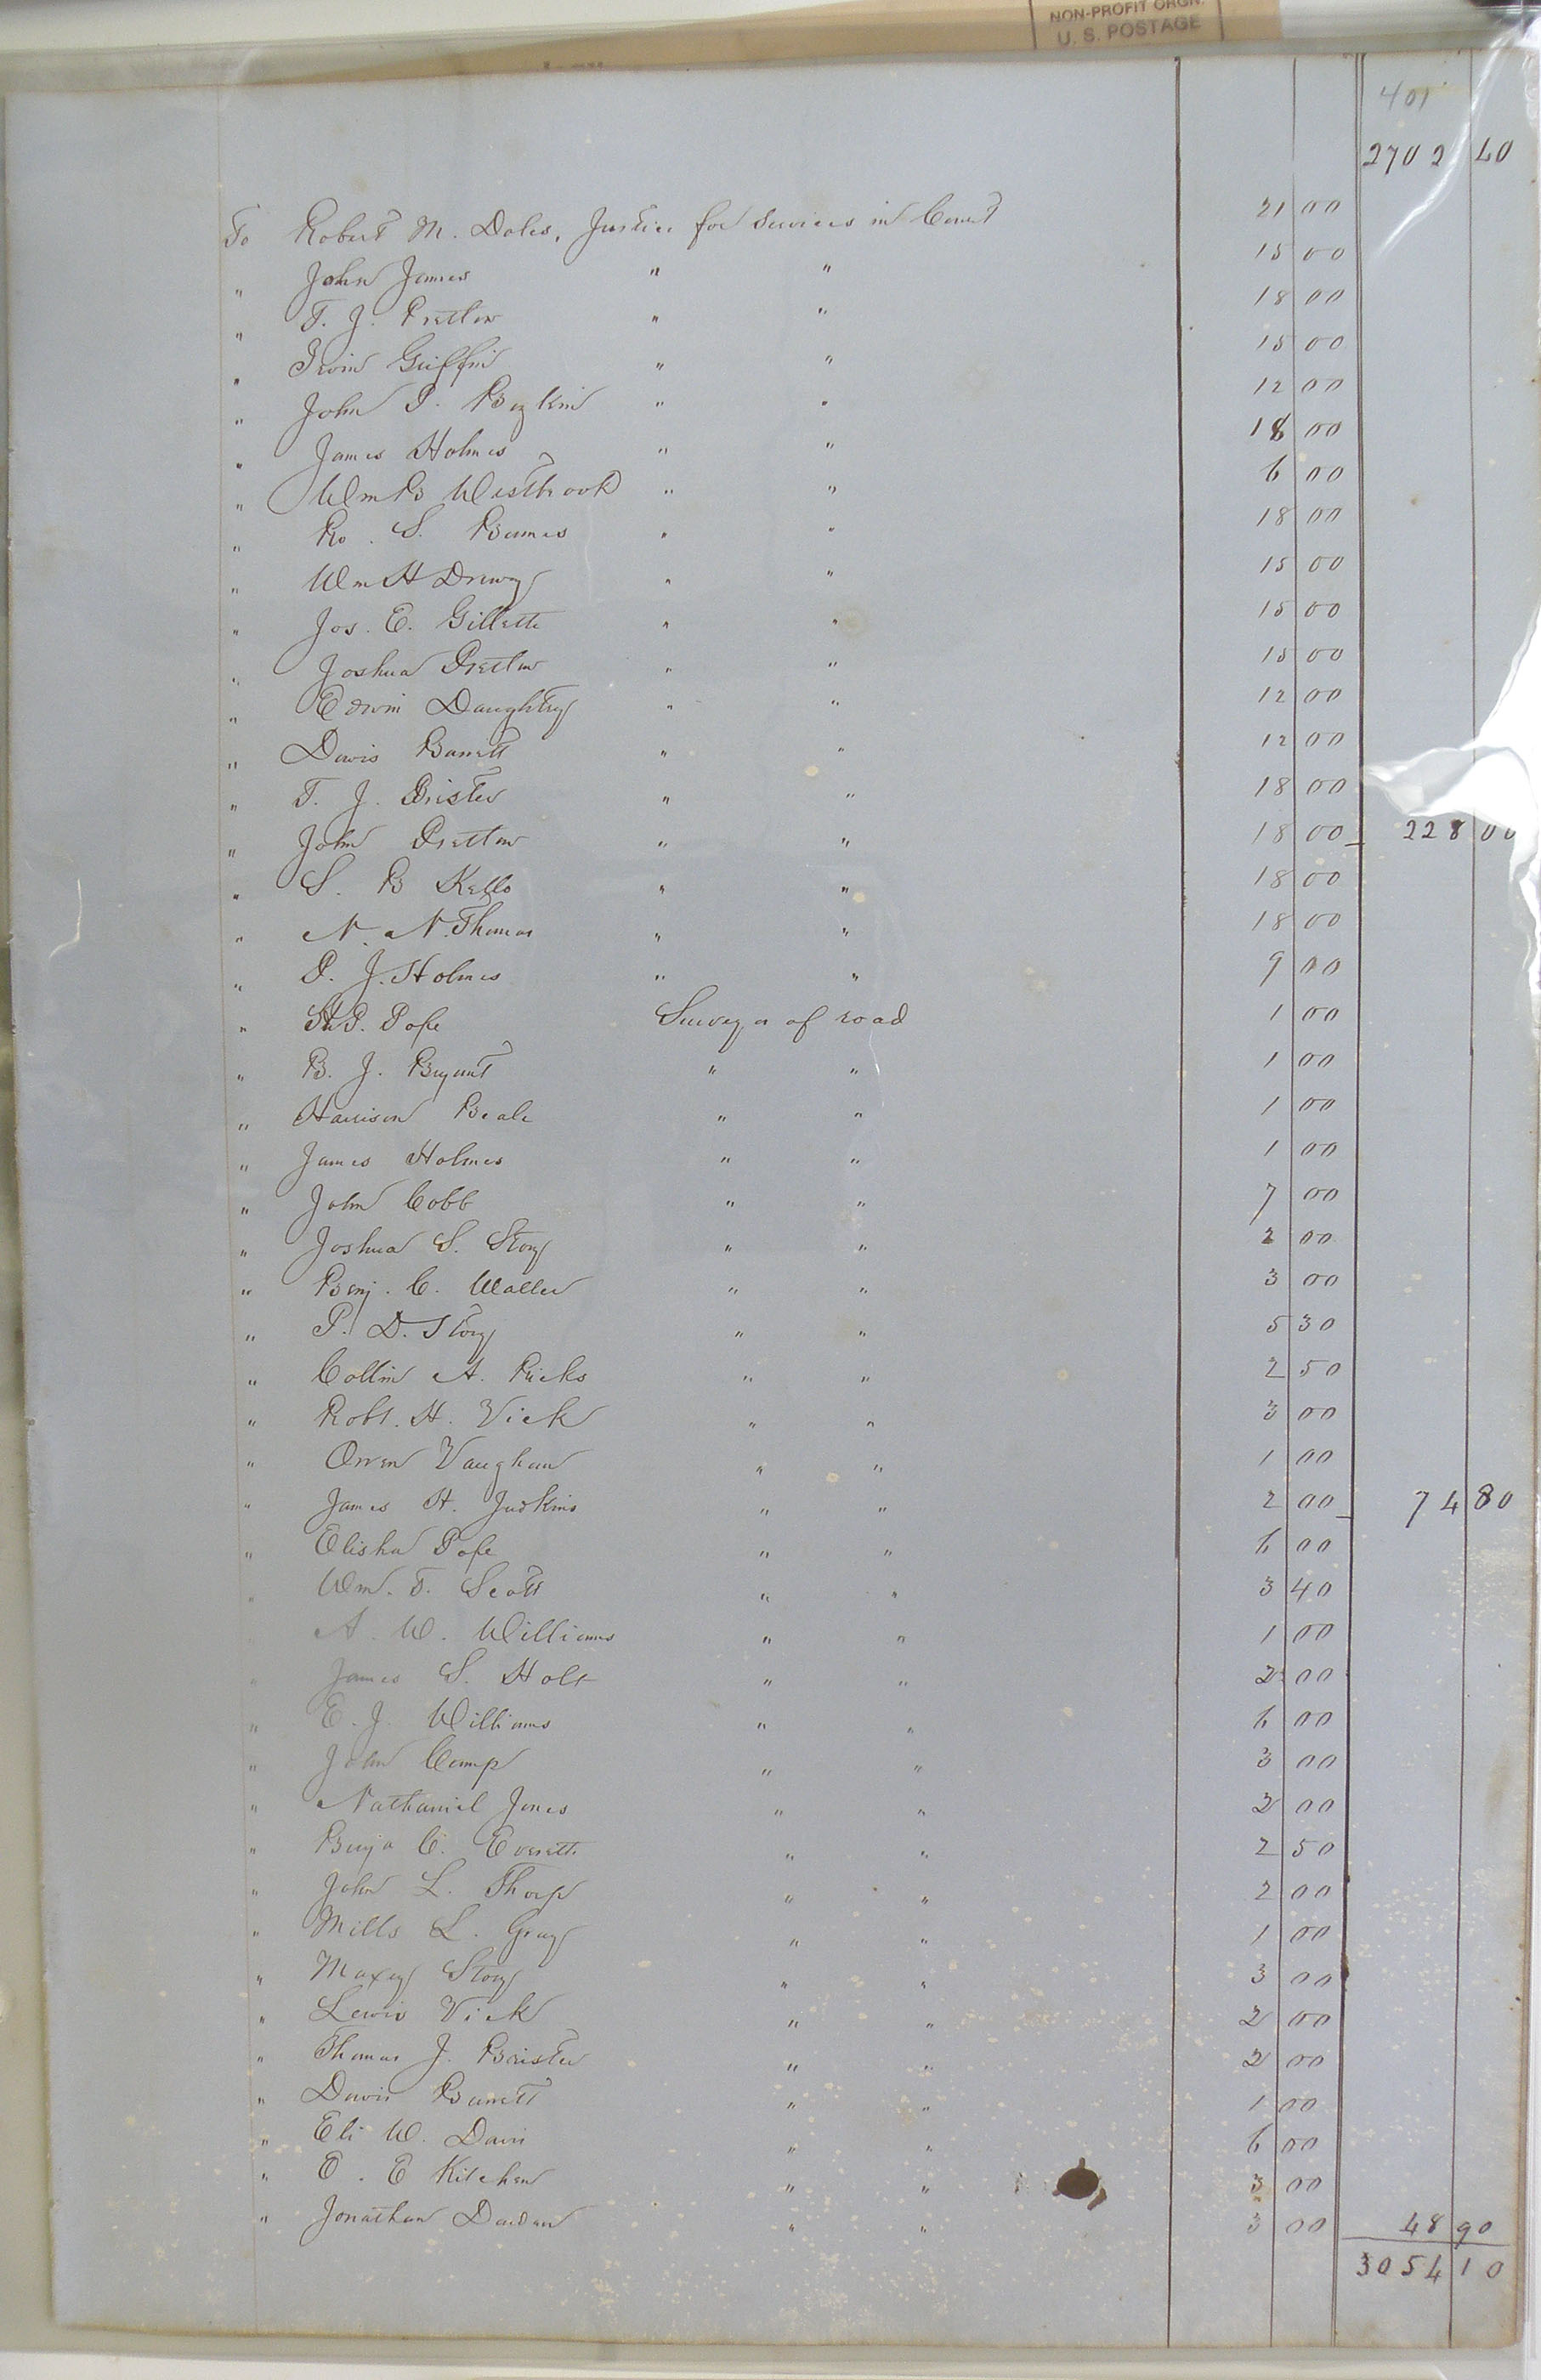 NON-PROFIT ORGN.
U. S. POSTAGE
401
2702 40
To Robert M. Doles, Justice for Services in Court 21 00
" John James " " 15 00
" T. J. Pretlow " " 18 00
" Irvin Griffin " " 15 00
" John P. Boykin " " 12 00
" James Holmes " " 18 00
" Wm B Westbrook " " 6 00
" Ro. S. Barnes " " 18 00
" Wm H Drewry " " 15 00
" Jos. E. Gillette " " 15 00
" Joshua Pretlow " " 15 00
" Edwin Daughtry " " 12 00
" Davis Barrett " " 12 00
" T. J. Brister " " 18 00
" John Pretlow " " 18 00 228 00
" S. B Kello " " 18 00
" N. N. Thomas " " 18 00
" P. J. Holmes " " 9 00
" P. Pope Surveyor of road 1 00
" B. J. Bryant " " 1 00
" Harrison Beale " " 1 00
" James Holmes " " 1 00
" John Cobb " " 7 00
" Joshua S. Story " " 2 00
" Benj. C. Waller " " 3 00
" P. D. Story " " 5 30
" Collin A. Ricks " " 2 50
" Robt. H. Vick " " 3 00
" Orren Vaughan " " 1 00
" James H. Judkins " " 2 00 74 80
" Elisha Pope " " 6 00
" Wm. T. Scott " " 3 40
" A. W. Williams " " 1 00
" James S. Holt " " 2 00
" E. J. Williams " " 6 00
" John Camp " " 3 00
" Nathaniel Jones " " 2 00
" Benja C. Everett " " 2 50
" John L. Thorp " " 2 00
" Mills L. Gray " " 1 00
" Maxey Story " " 3 00
" Lewis Vick " " 2 00
" Thomas J. Brister " " 2 00
" Davis Barrett " " 1 00
" Eli W. Davis " " 6 00
" E. E Kitchen " " 3 00
" Jonathan Darden " " 3 00 48 90
3054 10